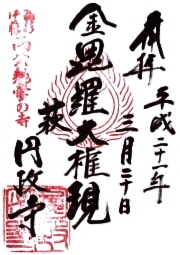 奉拝
平成二十一年
三月二十日
金毘羅大権現
萩
円政寺